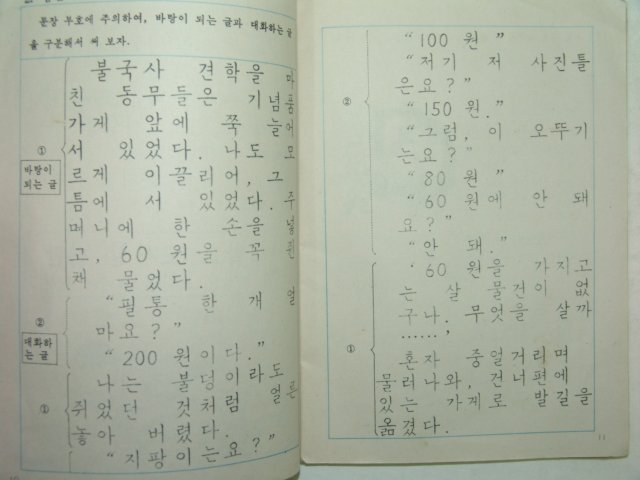 문장 부호에 주의하여, 바탕이 되는 글과 대화하는 글
을 구분해서 써 보자.
①
바탕이
되는 글
불국사 견학을 마
친 동무들은 기념품
가게 앞에 쭉 늘어
서 있었다. 나도 모
르게 이끌리어, 그
틈에 서 있었다. 주
머니에 한 손을 넣
고, 60 원을 꼭 쥔
채 물었다.
②
대화하
는 글
“필통 한 개 얼
마요?”
“200 원이다.”
①
나는 불덩이라도
쥐었던 것처럼 얼른
놓아 버렸다.
“지팡이는요?”
②
“100 원”
“저기 저 사진틀
은요?”
“150 원.”
“그럼, 이 오뚜기
는요?”
“80 원”
“60 원에 안 돼
요?”
“안 돼.”
①
‘60 원을 가지고
는 살 물건이 없
구나. 무엇을 살까
……,
혼자 중얼거리며
물러나와, 건너편에
있는 가게로 발길을
옮겼다.
11